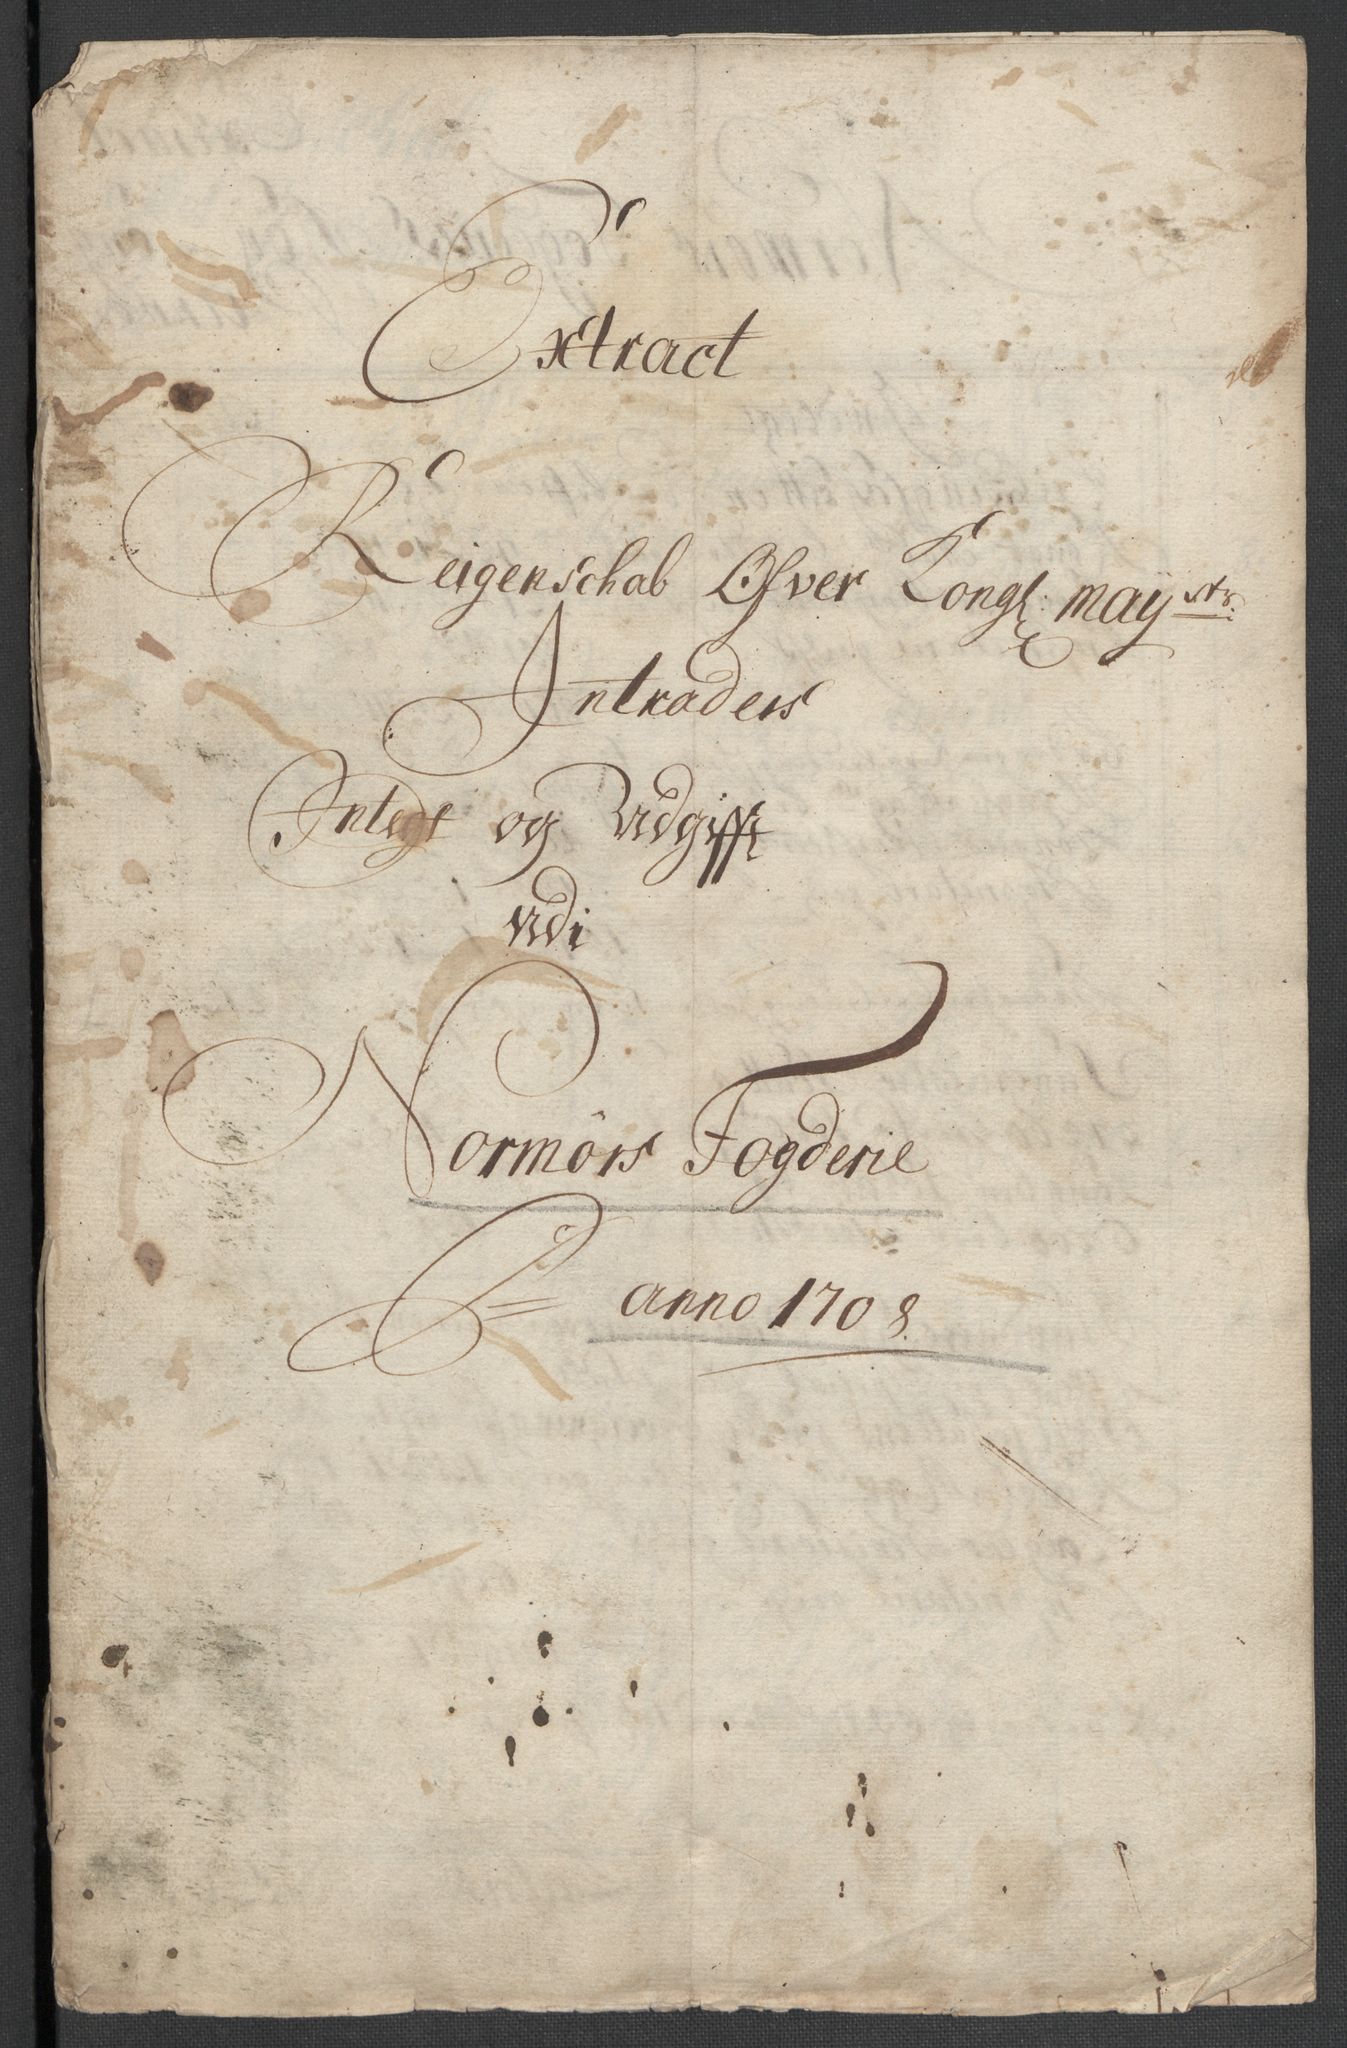 Extract
Reigenschab Ofver Kongl: Maÿsts:
Intraders
Integt og Udgifft
Udi
Normörs Fogderie
anno 1708.